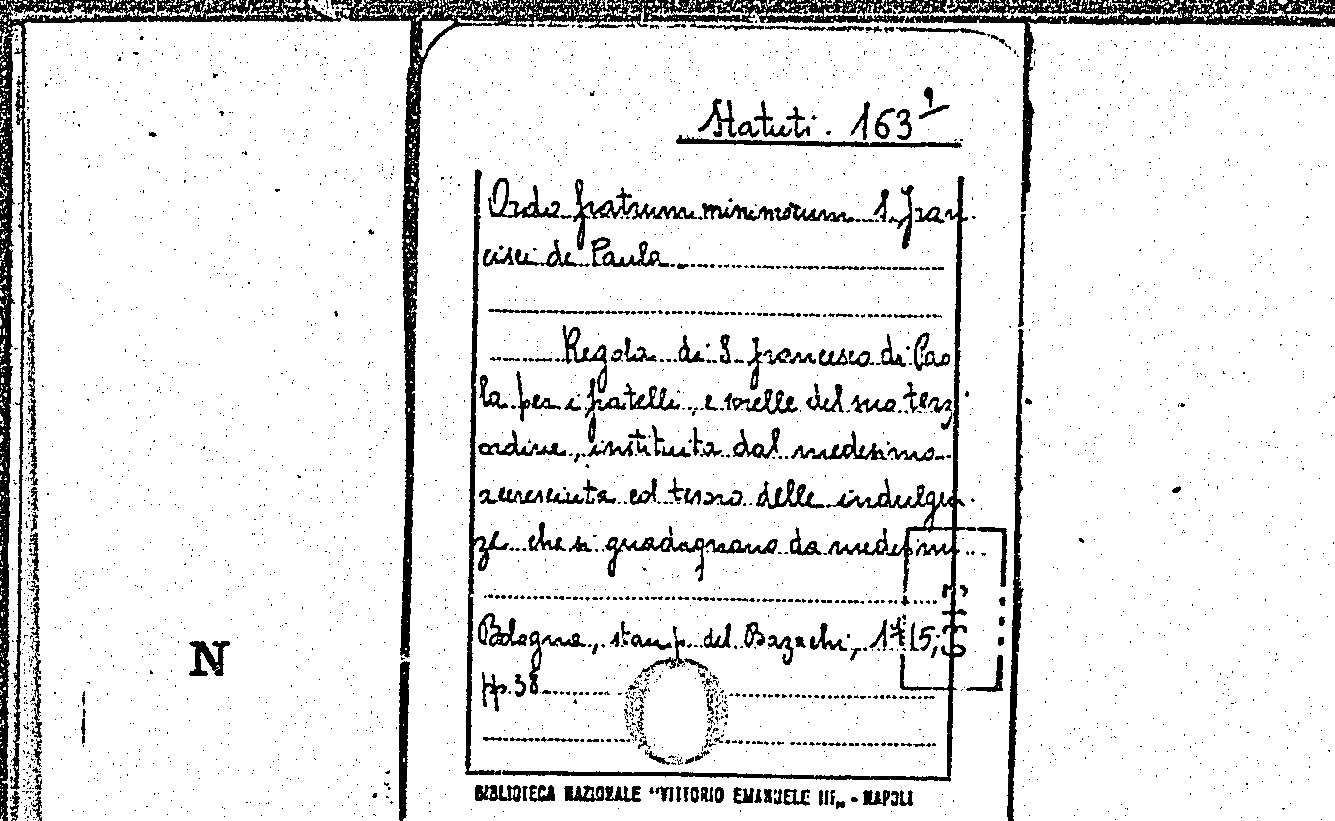 Statuti. 163⁹
Ordo fratrum minimorum S. Fran-
cisci de Paula
Regola di S. Francesco di Pao
la per i fratelli, e sorelle del suo terz.
ordine, instituita dal medesimo
accresciuta col tesoro delle indulgen-
ze che si guadagnano da medesimi
Bologna, stamp. del Bazachi, 1715,
pp. 38
N
BIBLIOTECA NAZIONALE "VITTORIO EMANUELE III„ - NAPOLI